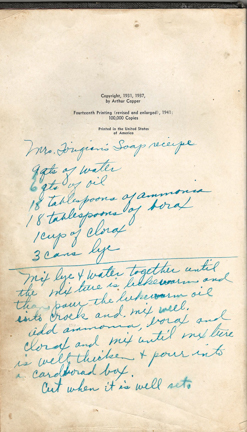 Copyright, 1931, 1937,
by Arthur Capper
Fourteenth Printing (revised and enlarged), 1941:
100,000 Copies
Printed in the United States
of America
Mrs. Soap recipe
9 qts of water
6 qts of oil
18 tablespoons of ammonia
18 tablespoons of borax
1 cup of clorox
3 cans lye
Mix lye & water together until
the mixture is lukewarm and
then pour the lukewarm oil
into crock and mix well.
add ammonia, borax and
clorox and mix until mixture
is well thicken & pour into
a cardboard box.
Cut when it is well sets